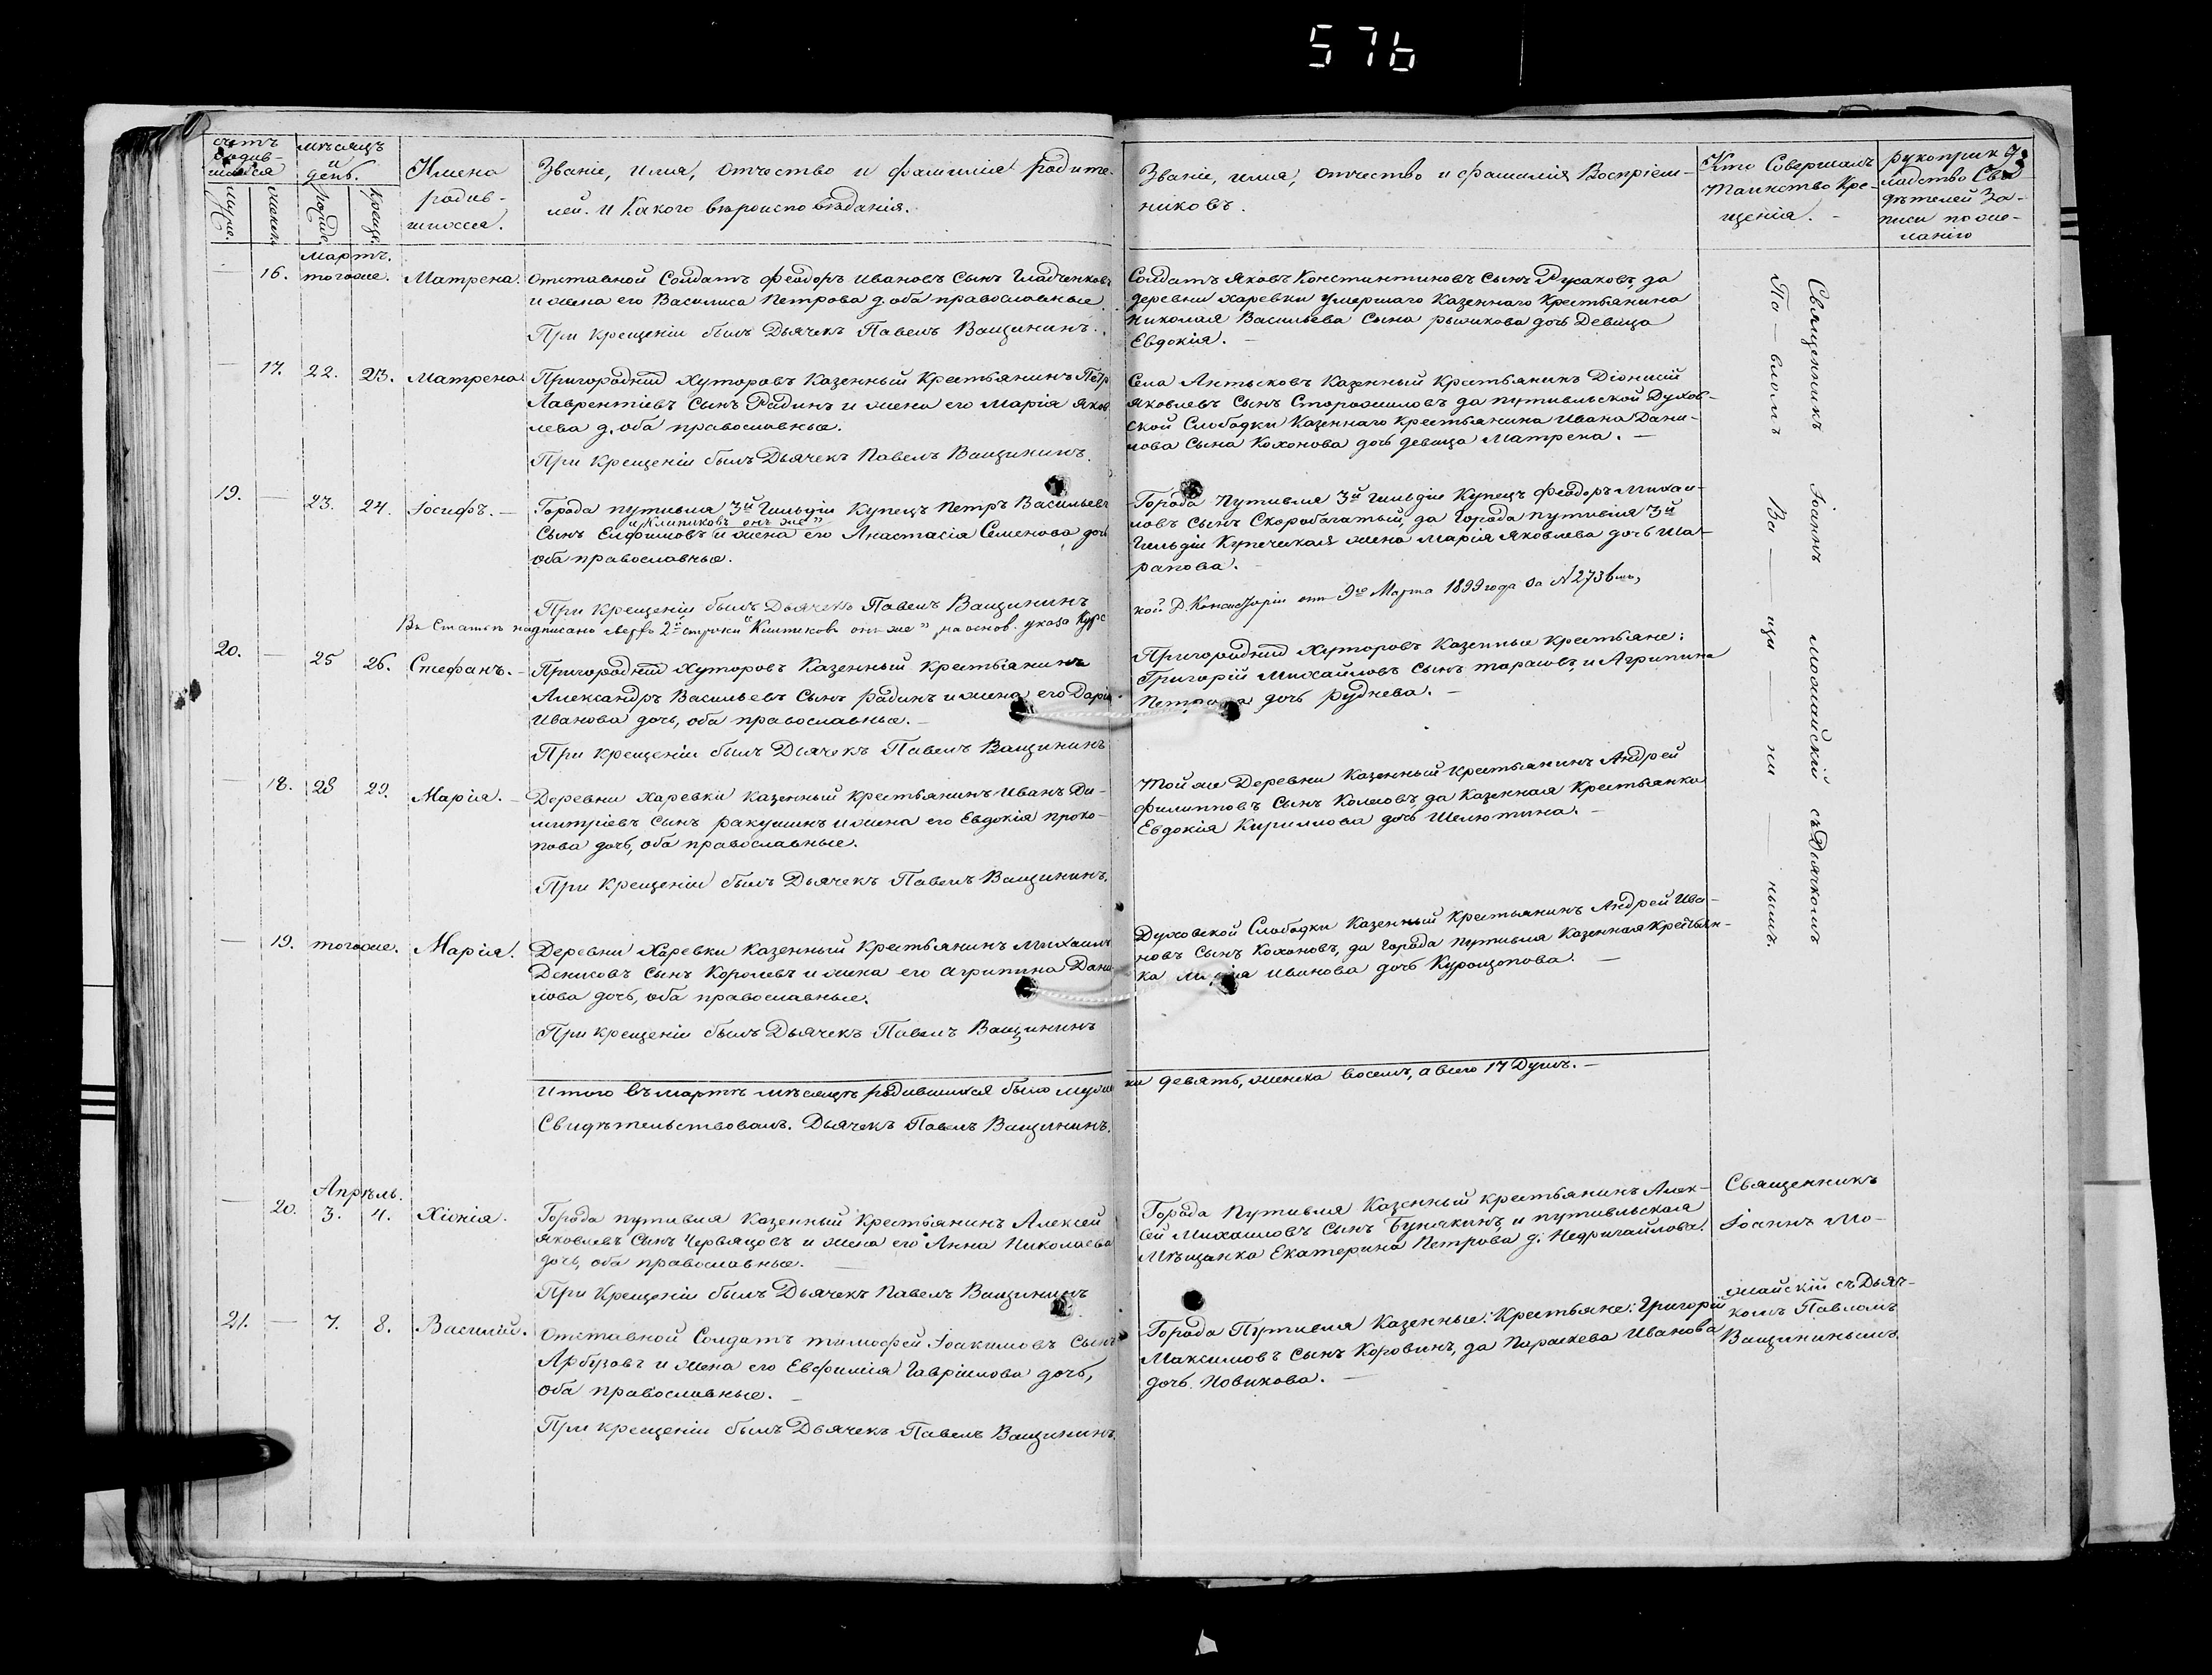 576
счетъ родив-шихся
мѣсяцъ и день.
Имена родив-шихся.
Званіе, имя, отчество и фамилія родите-
лей. и какого вѣроисповѣданія.
Званіе, имя, отчество и фамилія Воспріем-
никовъ.
Кто Совершалъ
Таинство Кре-
щенія.
рукоприк
ладство Сви
дѣтелей За-
писи по же-
ланію
муже. женск. рожде. крещен.
Мартъ.
16. тогоже. Матрена. Отставной Солдатъ Феодоръ Ивановъ Сынъ Гладченковъ
и жена его Василиса Петрова д. оба православные
При крещеніи былъ Дьячекъ Павелъ Ващининъ.
Солдатъ Яковъ Константиновъ Сынъ Русаковъ, да
деревни Харевки умершаго Казеннаго Крестьянина
Николая Васильева Сына рыжикова дочь Девица
Евдокія.
17. 22. 23. Матрена Пригородній Хуторовъ Казенный Крестьянинъ Петр
Лаврентіевъ Сынъ Радинъ и жена его Марія Яков
лева д. оба православные.
При Крещеніи былъ Дьячекъ Павелъ Ващининъ.
Села Антыковъ Казенный Крестьянинъ Діонисій
Яковлевъ Сынъ Сторожиловъ да путивльской Духов-
ской Слободки Казеннаго Крестьянина Ивана Дани-
лова Сына Кохонова дочь девица Матрена.
19. 23. 24. Іосифъ. Города путивля 3й Гильдіи Купецъ Петръ Васильевъ
"Клитковъ онъ же"
Сынъ Елфимовъ и жена его Анастасія Семенова дочь
оба православные.
При Крещеніи былъ Дьячекъ Павелъ Ващининъ
Города Путивля 3й Гильдіи Купецъ Феодоръ Михаи-
ловъ Сынъ Скоробагатый, да Города путивля 3й
Гильдіи Купеческая жена Марія Яковлева дочь Ша-
рапова.
Въ Статьѣ надписано сверхъ 2й строки "Клитковъ онъ же" на основ. указа Курс
кой Д. Консисторіи отъ 9го Марта 1899 года за №273
20. 25 26. Стефанъ. Пригородній Хуторовъ Казенный Крестьянинъ
Александръ Васильевъ Сынъ Радинъ и жена его Дарія
Иванова дочь, оба православные.
При крещеніи былъ Дьячекъ Павелъ Ващининъ
Пригородній Хуторовъ Казенные Крестьяне:
Григорій Михайловъ Сынъ тарасовъ, и Агрипина
Петрова дочь руднева.
18. 28 29. Марія. Деревни Харевки казенный крестьянинъ Иванъ Ди-
митріевъ Сынъ ракушинъ и жена его Евдокія проко-
пова дочь, оба православные.
При Крещеніи былъ Дьячекъ Павелъ Ващининъ.
Той же Деревни Казенный крестьянинъ Андрей
Филипповъ Сынъ Комовъ, да Казенная Крестьянка
Евдокія Кириллова дочь Шелютина.
19. тогоже. Марія. Деревни Харевки Казенный Крестьянинъ Михаилъ
Денисовъ Сынъ Королевъ и жена его Агрипина Дани
лова дочь, оба православные.
При крещеніи былъ Дьячекъ Павелъ Ващининъ
Духовской Слободки Казенный Крестьянинъ Андрей Ива-
новъ Сынъ Кохановъ, да города путивля Казенная Крестьян-
ка Марія Иванова дочь Курощопова.
Священникъ Іоаннъ Можайскій съ Дьячкомъ
Па-вломъ Ва-щи-ни-нымъ.
Итого въ мартѣ мѣсяцѣ родившихся было мужес ка девять, женска восемь, а всего 17 Душъ.
Свидѣтельствовалъ. Дьячекъ Павелъ Ващининъ.
Апрѣль.
20. 3. 4. Хіонія. Города путивля Казенный Крестьянинъ Алексей
Яковлевъ Сынъ Червяцовъ и жена его Анна Николаева
дочь, оба православные.
При Крещеніи былъ Дьячекъ Павелъ Ващининъ
Города Путивля Казенный крестьянинъ Алек-
сей Михаиловъ Сынъ Бунякинъ, и путивльская
Мѣщанка Екатерина Петрова д: Недригайлова.
21. 7. 8. Василій. Отставной Солдатъ тимофей Іоакимовъ Сынъ
Арбузовъ и жена его Евфимія Гавріилова дочь,
оба православные.
При крещеніи былъ Дьячекъ Павелъ Ващининъ.
Города Путивля Казенные Крестьяне: Григорій
Максимовъ Сынъ Коровинъ, да Параскева Иванова
дочь Новикова.
Священникъ
Іоаннъ Мо-
жайскій съ Дьяч-
комъ Павломъ
Ващининымъ.